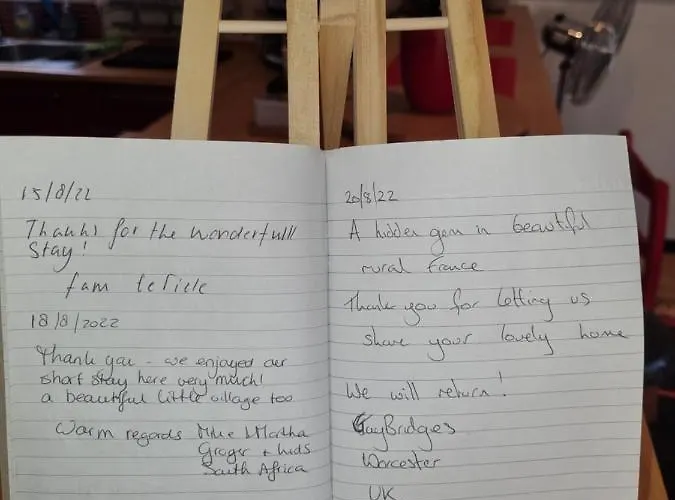 15/8/22
Thanks for the wonderfull
Stay!
fam te
18/8/2022
Thank you - we enjoyed our
short stay here very much!
a beautiful little village too
Warm regards Mike & Martha
+ kids
South Africa
20/8/22
A hidden gem in beautiful
rural France
Thank you for letting us
share your lovely home
We will return!
GayBridges
Worcester
UK